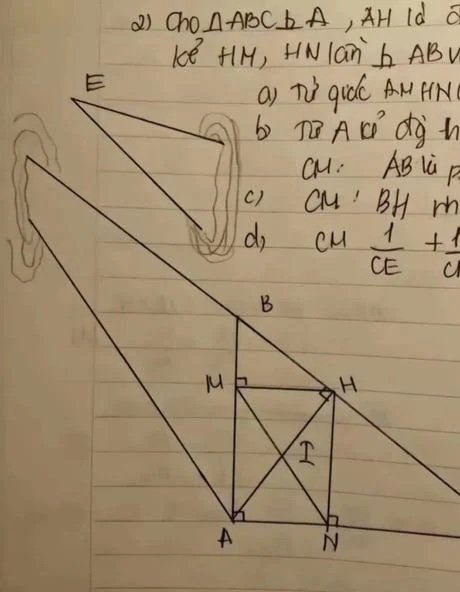 2) Cho ΔABC ⊥ A, AH là
kẻ HM, HN lần ⊥ AB
a) Tứ giác AMHN
b) Từ A kẻ
CM: AB là
c) CM: BH
d) CM 1/CE +
E
B
M
H
I
A
N